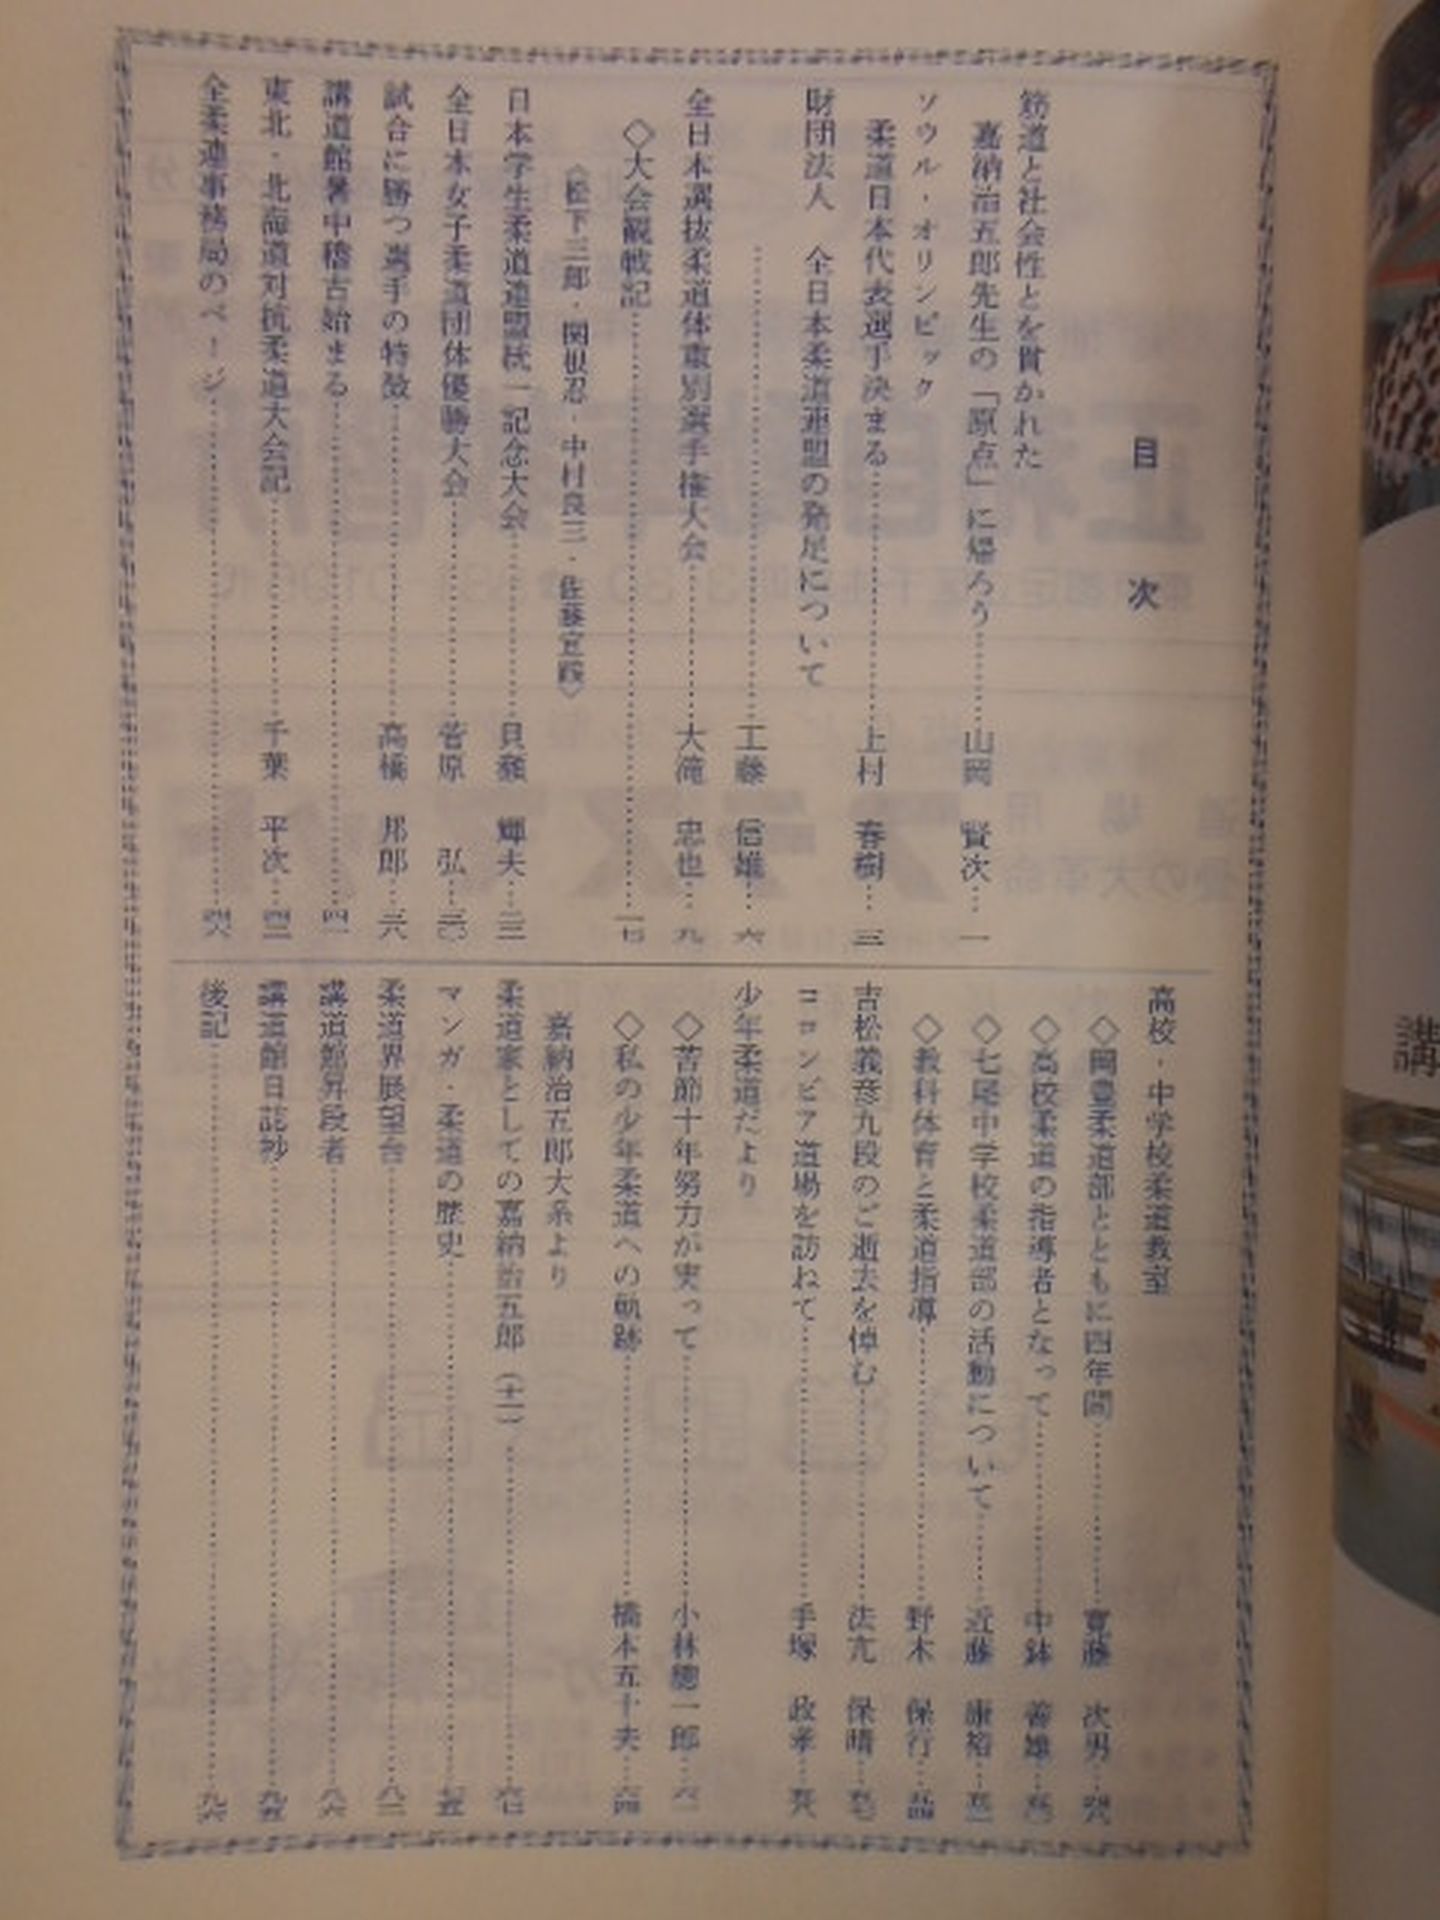 目次
筋道と社会性とを貫かれた
嘉納治五郎先生の「原点」に帰ろう……山岡 賢次…一
ソウル・オリンピック
柔道日本代表選手決まる……上村 春樹…三
財団法人 全日本柔道連盟の発足について
……工藤 信雄…六
全日本選抜柔道体重別選手権大会……大滝 忠也…九
◇大会観戦記……一七
〈松下三郎・関根忍・中村良三・佐藤宣践〉
日本学生柔道連盟統一記念大会……貝瀬 輝夫…
全日本女子柔道団体優勝大会……菅原 弘…
試合に勝つ選手の特徴……高橋 邦郎…
講道館暑中稽古始まる……四一
東北・北海道対抗柔道大会記……千葉 平次…
全柔連事務局のページ……
高校・中学校柔道教室
◇岡豊柔道部とともに四年間……寛藤 次男…
◇高校柔道の指導者となって……中鉢 善雄…
◇七尾中学校柔道部の活動について……近藤 康裕…
◇教科体育と柔道指導……野木 保行…
吉松義彦九段のご逝去を悼む……法元 保晴…
コロンビア道場を訪ねて……手塚 政孝…
少年柔道だより
◇苦節十年努力が実って……小林 一郎…六一
◇私の少年柔道への軌跡……橋本五十夫…六四
嘉納治五郎大系より
柔道家としての嘉納治五郎(十二)……六七
マンガ・柔道の歴史……七五
柔道界展望台……
講道館昇段者……八六
講道館日誌抄……九五
後記……九六
講